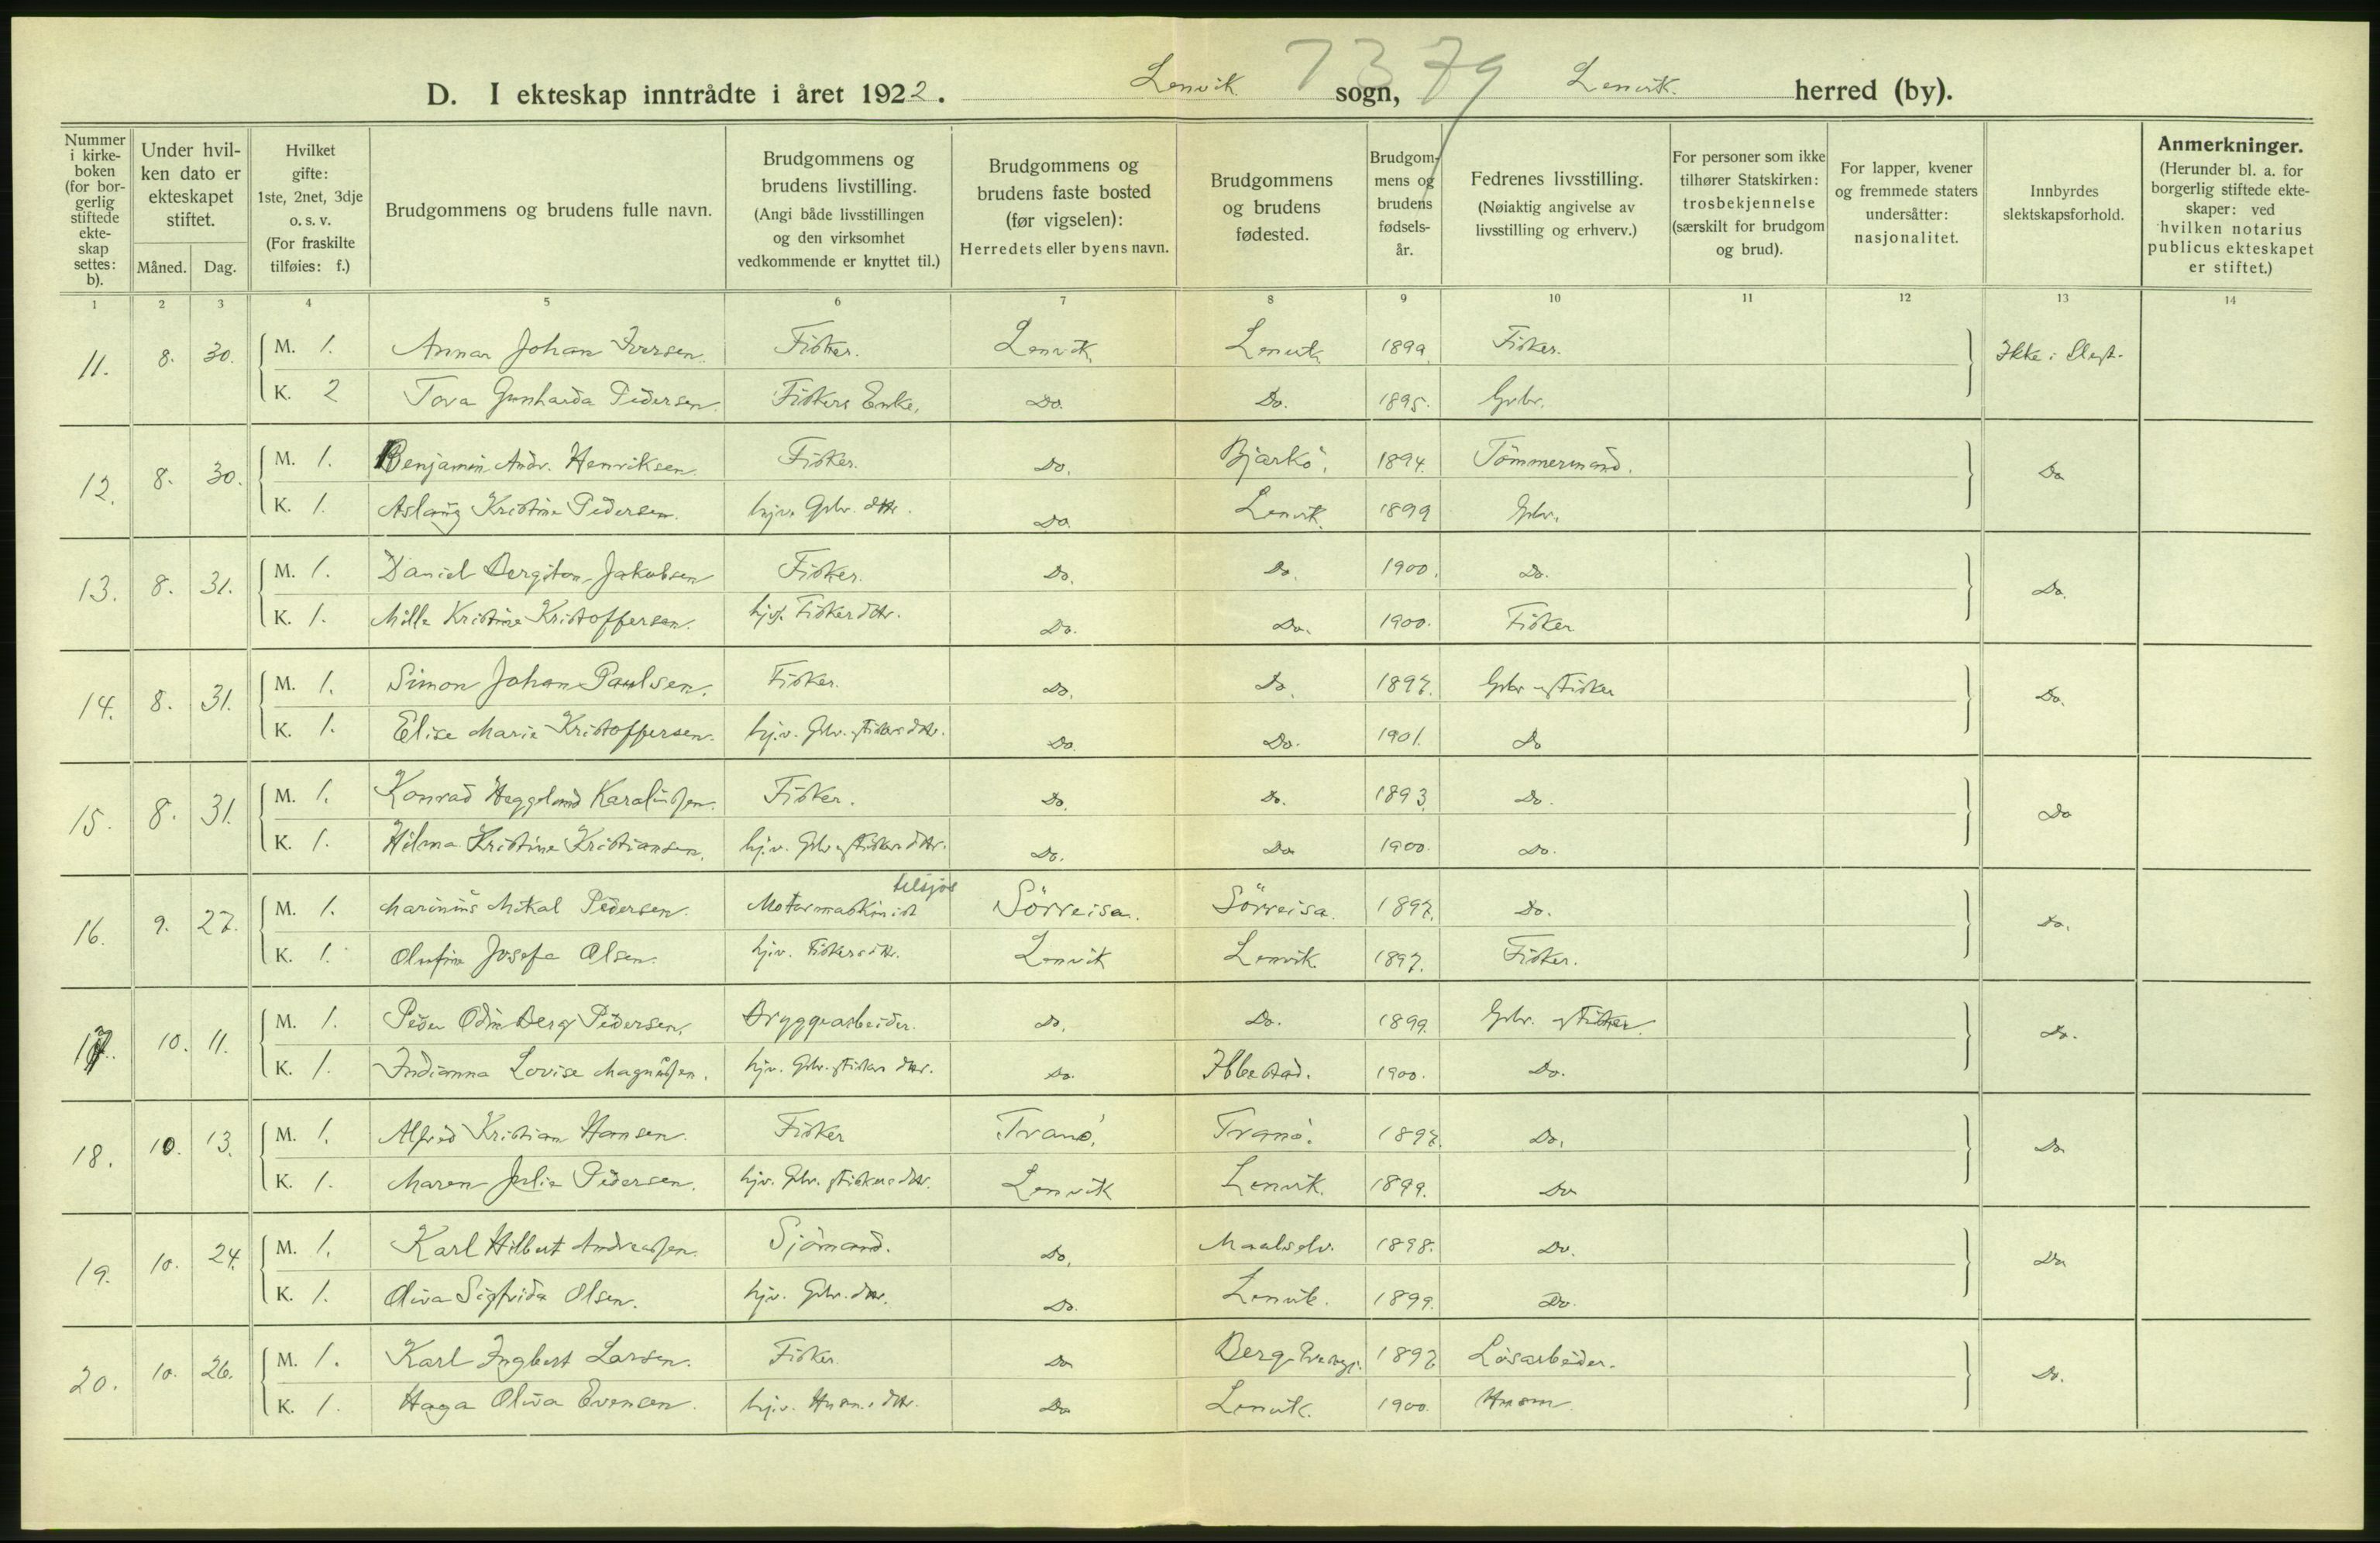 D. I ekteskap inntrådte i året 1922. Lenvik sogn, Lenvik herred (by).
7379
Nummer i kirke-boken (for bor-gerlig stiftede ekte-skap settes: b).
Under hvil-ken dato er ekteskapet stiftet.
Måned. Dag.
Hvilket gifte: 1ste, 2net, 3dje o. s. v. (For fraskilte tilføies: f.)
Brudgommens og brudens fulle navn.
Brudgommens og brudens livstilling. (Angi både livsstillingen og den virksomhet vedkommende er knyttet til.)
Brudgommens og brudens faste bosted (før vigselen): Herredets eller byens navn.
Brudgommens og brudens fødested.
Brudgom-mens og brudens fødsels-år.
Fedrenes livsstilling. (Nøiaktig angivelse av livsstilling og erhverv.)
For personer som ikke tilhører Statskirken: trosbekjennelse (særskilt for brudgom og brud).
For lapper, kvener og fremmede staters undersåtter: nasjonalitet.
Innbyrdes slektskapsforhold.
Anmerkninger. (Herunder bl. a. for borgerlig stiftede ekte-skaper: ved hvilken notarius publicus ekteskapet er stiftet.)
1 2 3 4 5 6 7 8 9 10 11 12 13 14
11. 8. 30. M. 1. Annar Johan Iversen. Fisker. Lenvik Lenvik 1899 Fisker. Ikke i Slegt.
K. 2 Tova Gunharda Pedersen. Fiskers Enke. Do. Do. 1895. Gbr.
12. 8. 30. M. 1. Benjamin Andr. Henriksen Fisker. Do. Bjarkö. 1894. Tömmermand. Do
K. 1. Aslaug Kristine Pedersen. hjv. Gbr. dtr. Do Lenvik. 1899 Gbr.
13. 8. 31. M. 1. Daniel Bergiton Jakobsen Fisker. Do. Do. 1900. Do. Do.
K. 1. Mille Kristine Kristoffersen. hjv. Fisker dtr. Do. Do. 1900. Fisker
14. 8. 31. M. 1. Simon Johan Paulsen. Fisker. Do. Do. 1897. Gbr og Fisker Do.
K. 1. Elise Marie Kristoffersen. hj.v. Gbr. og Fiskers dtr. Do. Do. 1901. Do
15. 8. 31. M. 1. Konrad Heggelund Karalussen. Fisker. Do. Do. 1893. Do. Do
K. 1. Hilma Kristine Kristiansen. hj.v. Gbr og Fiskers dtr. Do. Do 1900. Do.
16. 9. 27. M. 1. Marinus Mikal Pedersen. Motormaskinist tilsjøs Sörreisa. Sörreisa. 1897. Do. Do.
K. 1. Olufine Josefa Olsen. hjv. Fiskers dtr. Lenvik Lenvik 1897. Fisker.
17. 10. 11. M. 1. Peder Odin Berg Pedersen. Bryggearbeider. Do. Do. 1899. Gbr. og Fisker. Do.
K. 1. Indianna Lovise Magnussen. hjv. Gbr. og Fiskers dtr. Do. Ibbestad. 1900. Do.
18. 10. 13. M. 1. Alfred Kristian Hansen. Fisker Tranö. Tranö. 1897. Do. Do
K. 1. Maren Julie Pedersen. hjv. Gbr. og Fiskers dtr. Lenvik Lenvik. 1899. Do
19. 10. 24. M. 1. Karl Hilbert Andreassen. Sjömand. Do. Maalselv. 1898. Do. Do
K. 1. Oliva Sigfrida Olsen. hjv. Gbr. dtr. Do. Lenvik. 1899. Do.
20. 10. 26. M. 1. Karl Ingbert Larsen. Fisker Do Berg 1897 Lösarbeider. Do.
K. 1. Haga Oliva Evensen. hj.v. Husm.s dtr. Do Lenvik. 1900. Husm.